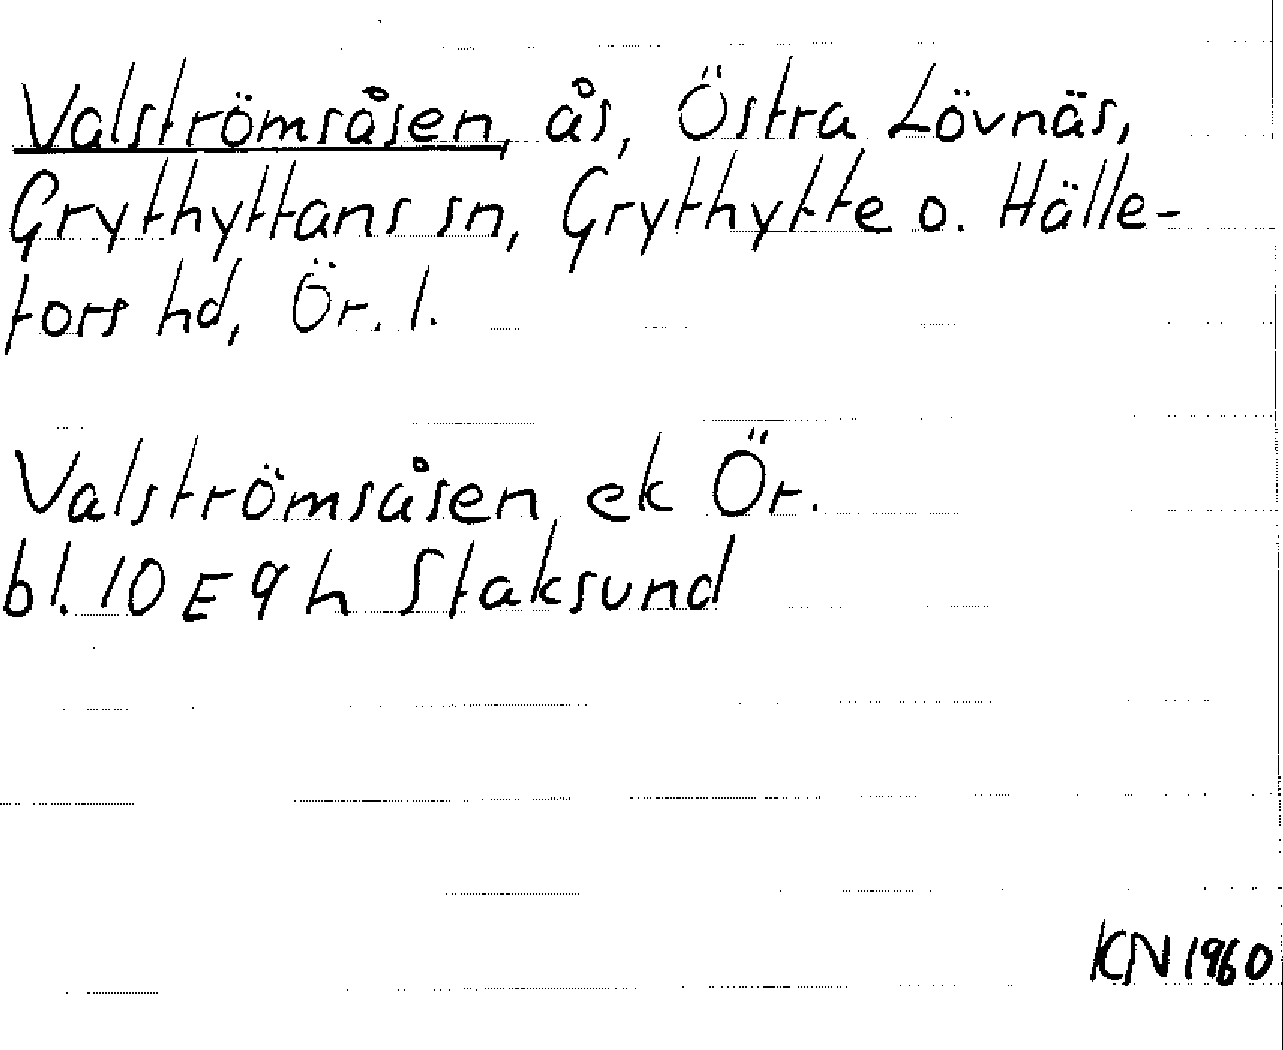 Valströmsåsen, ås, Östra Lövnäs,
Grythyttans sn, Grythytte o. Hälle-
fors hd, Ör. l.
Valströmsåsen ek Ör.
bl. 10 E 9 h Staksund
KN 1960